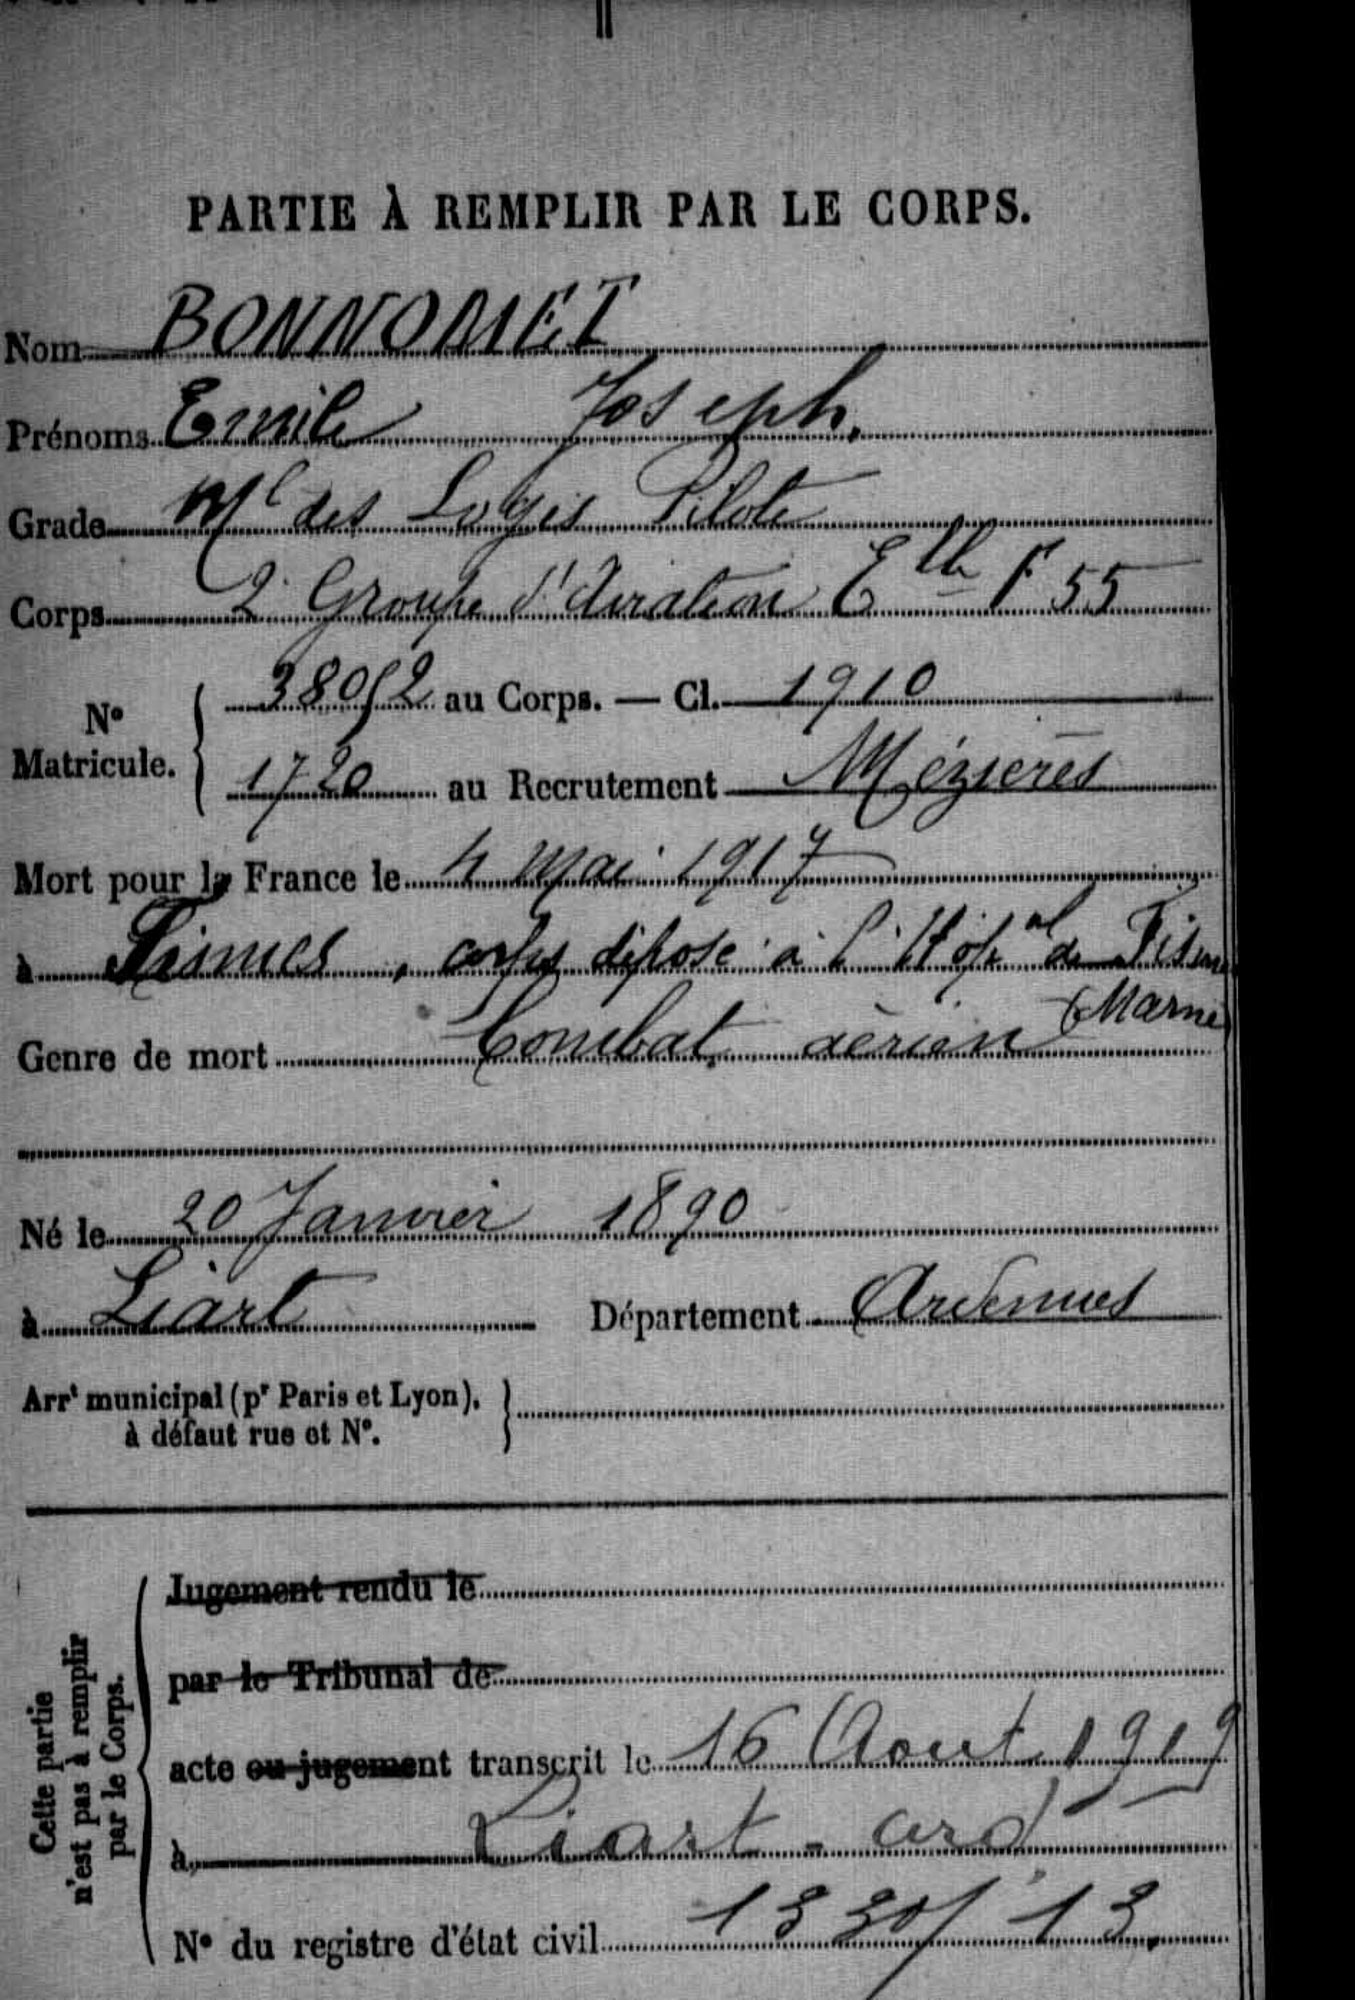 PARTIE À REMPLIR PAR LE CORPS.
Nom BONNOMET
Prénoms Emile Joseph.
Grade Ml des Logis Pilote
Corps 2 Groupe d'Aviation Elle F 55
38052 au Corps. — Cl. 1910
No Matricule.
1720 au Recrutement Mézières
Mort pour la France le 4 Mai 1917
à Fismes, corps déposé à l'Hôpal de Fismes
(Marne)
Genre de mort Combat aérien
Né le 20 Janvier 1890
à Liart Département Ardennes
Arrt municipal (pr Paris et Lyon),
à défaut rue et No.
Cette partie
n'est pas à remplir
par le Corps.
Jugement rendu le
par le Tribunal de
acte ou jugement transcrit le 16 Aout 1919
à Liart - ard
No du registre d'état civil